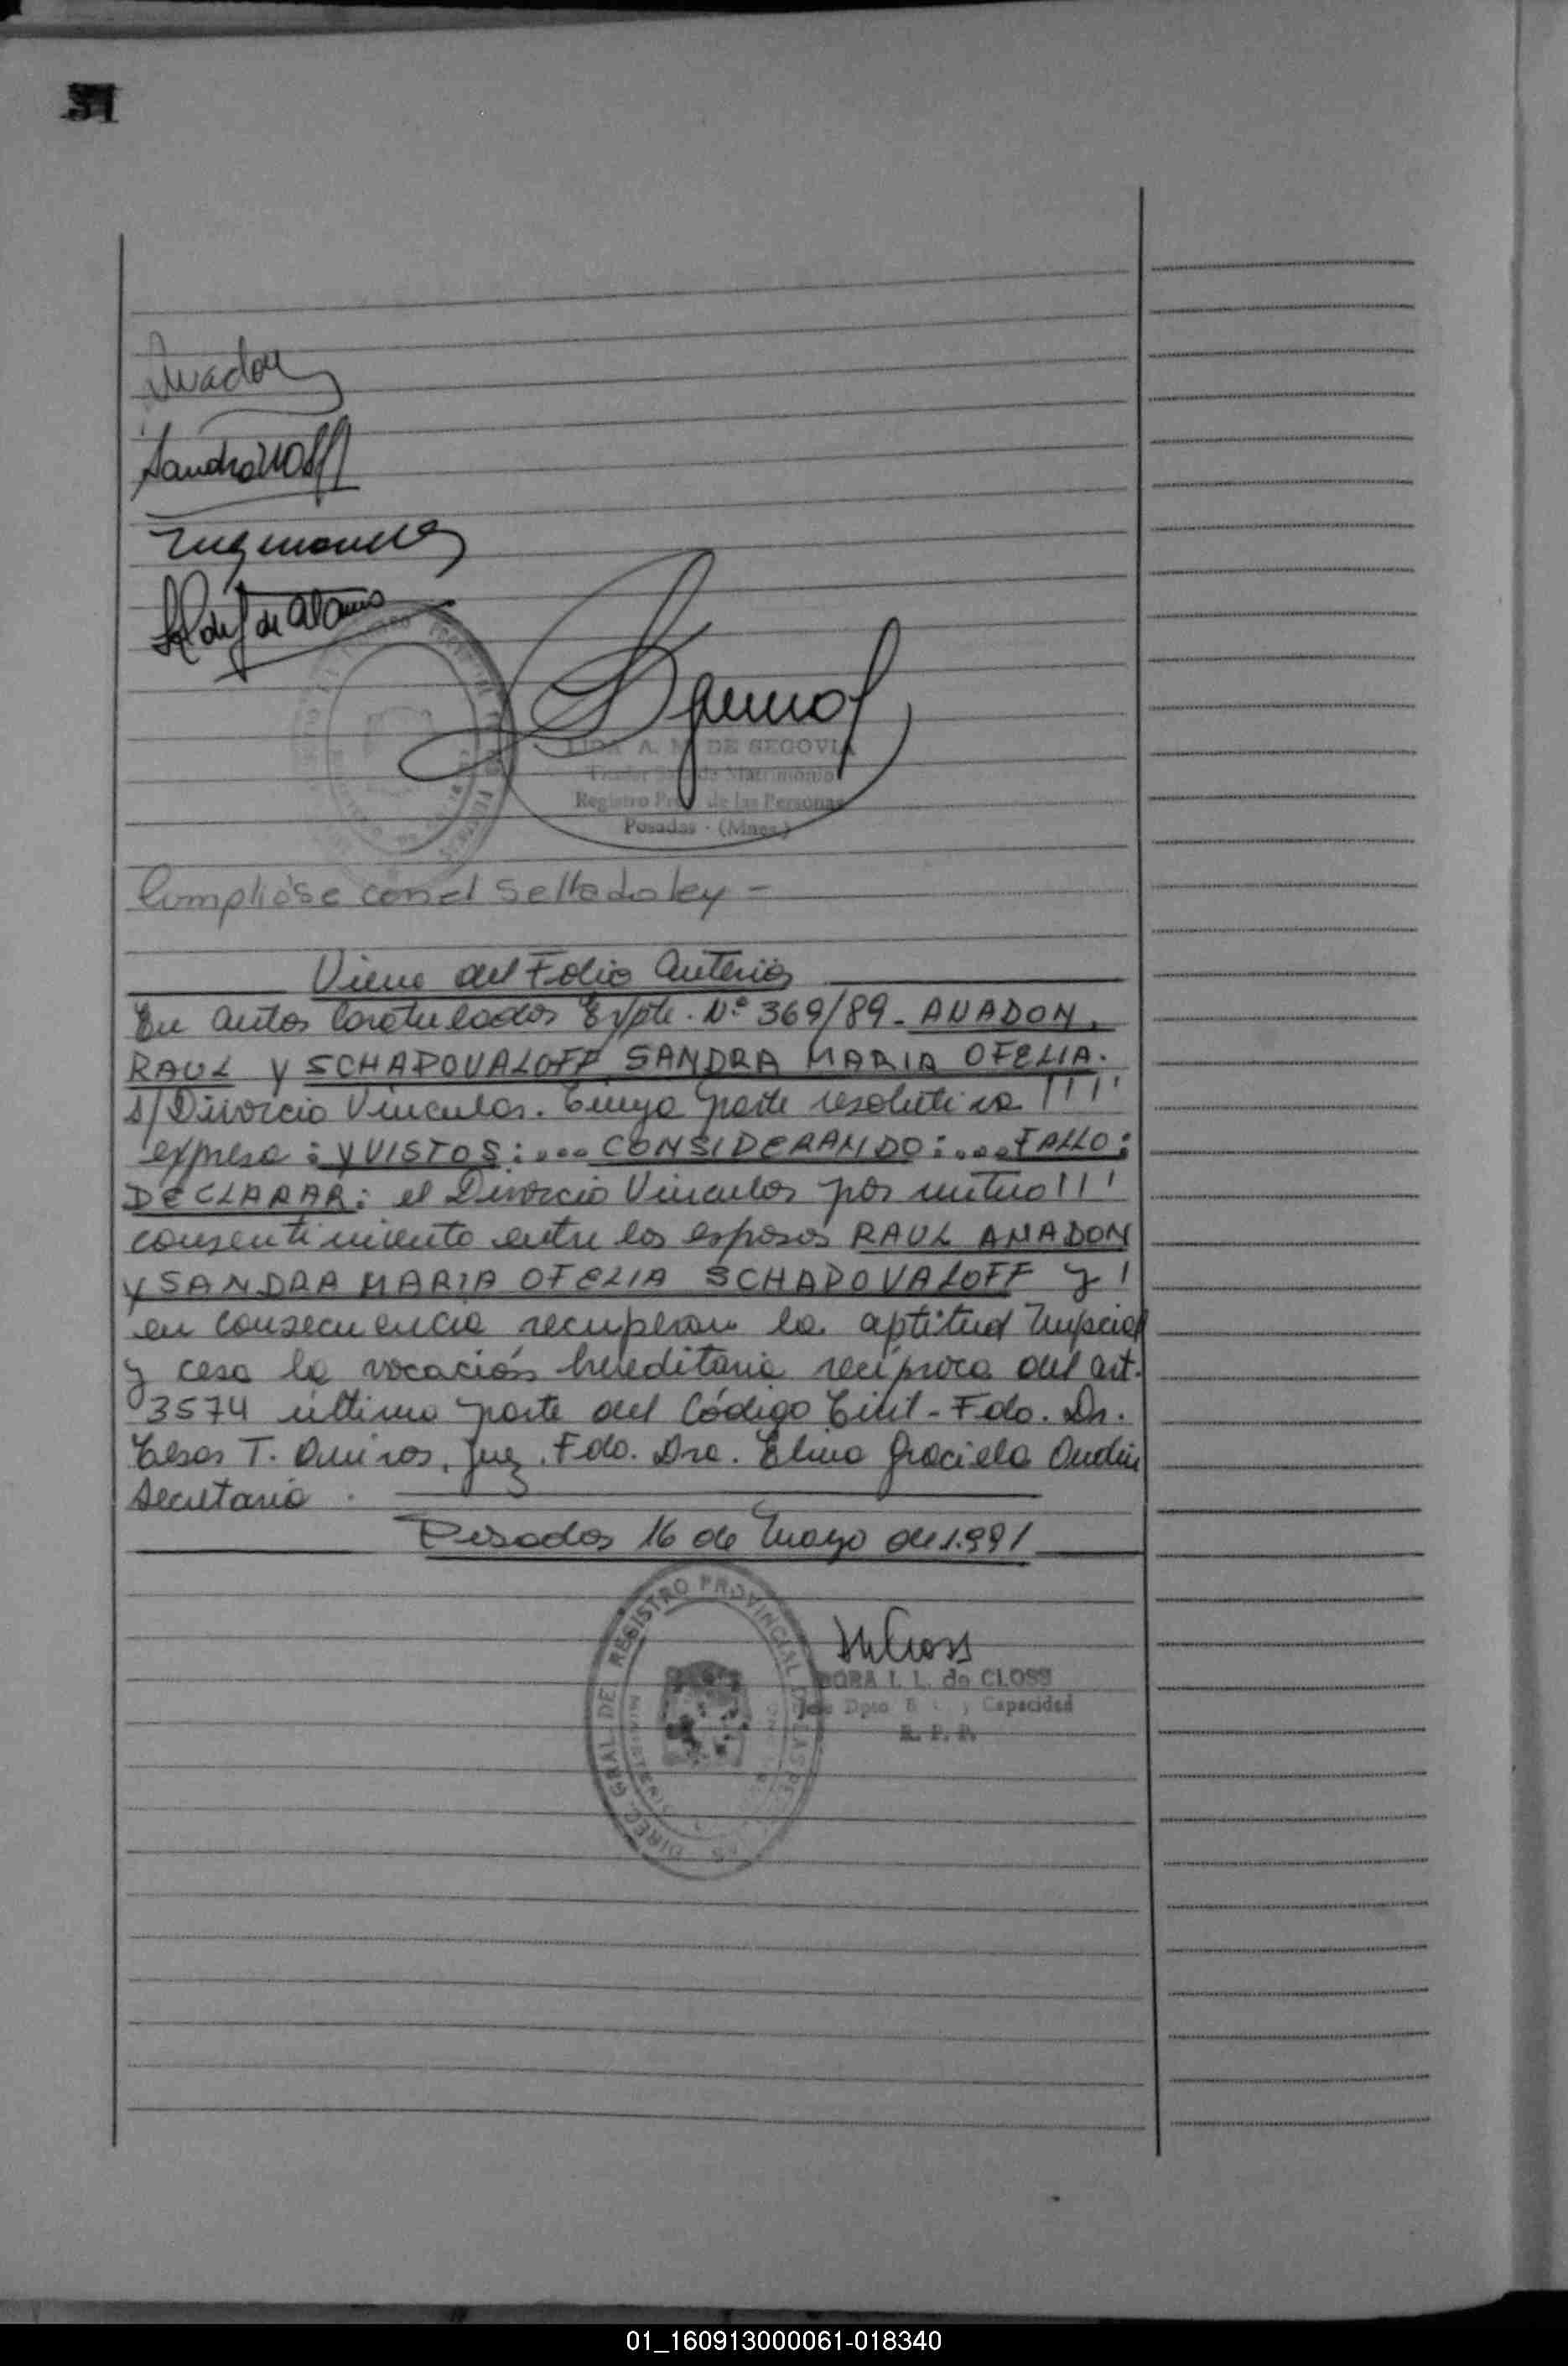 31
Anadon
LIDA A. M. DE SEGOVIA
Titular de Matrimonio
Registro Prov. de las Personas
Posadas - (Mnes.)
Cumplióse con el Sellado ley =
Viene del Folio anterior
En autos Caratulados Expte. Nº 369/89 - ANADON,
RAUL y SCHAPOVALOFF SANDRA MARIA OFELIA.
s/Divorcio Vincular. Cuya parte resolutiva !!!!
expresa: Y VISTOS: ... CONSIDERANDO: ... FALLO:
DECLARAR: el Divorcio Vincular por mutuo !!!
consentimiento entre los esposos RAUL ANADON
y SANDRA MARIA OFELIA SCHAPOVALOFF y !
en consecuencia recuperan la aptitud nupcial
y cesa la vocación hereditaria recíproca del art.
3574 última parte del Código Civil - Fdo. Dr.
T. Quiros, Juez. Fdo. Dra. Elina Graciela
Secretaria.
Posadas 16 de mayo de 1.991
DIREC. GRAL. DEL REGISTRO PROVINCIAL DE LAS PERSONAS
DORA I. L. de CLOSS
Jefe Dpto. y Capacidad
R. P. P.
01_160913000061-018340